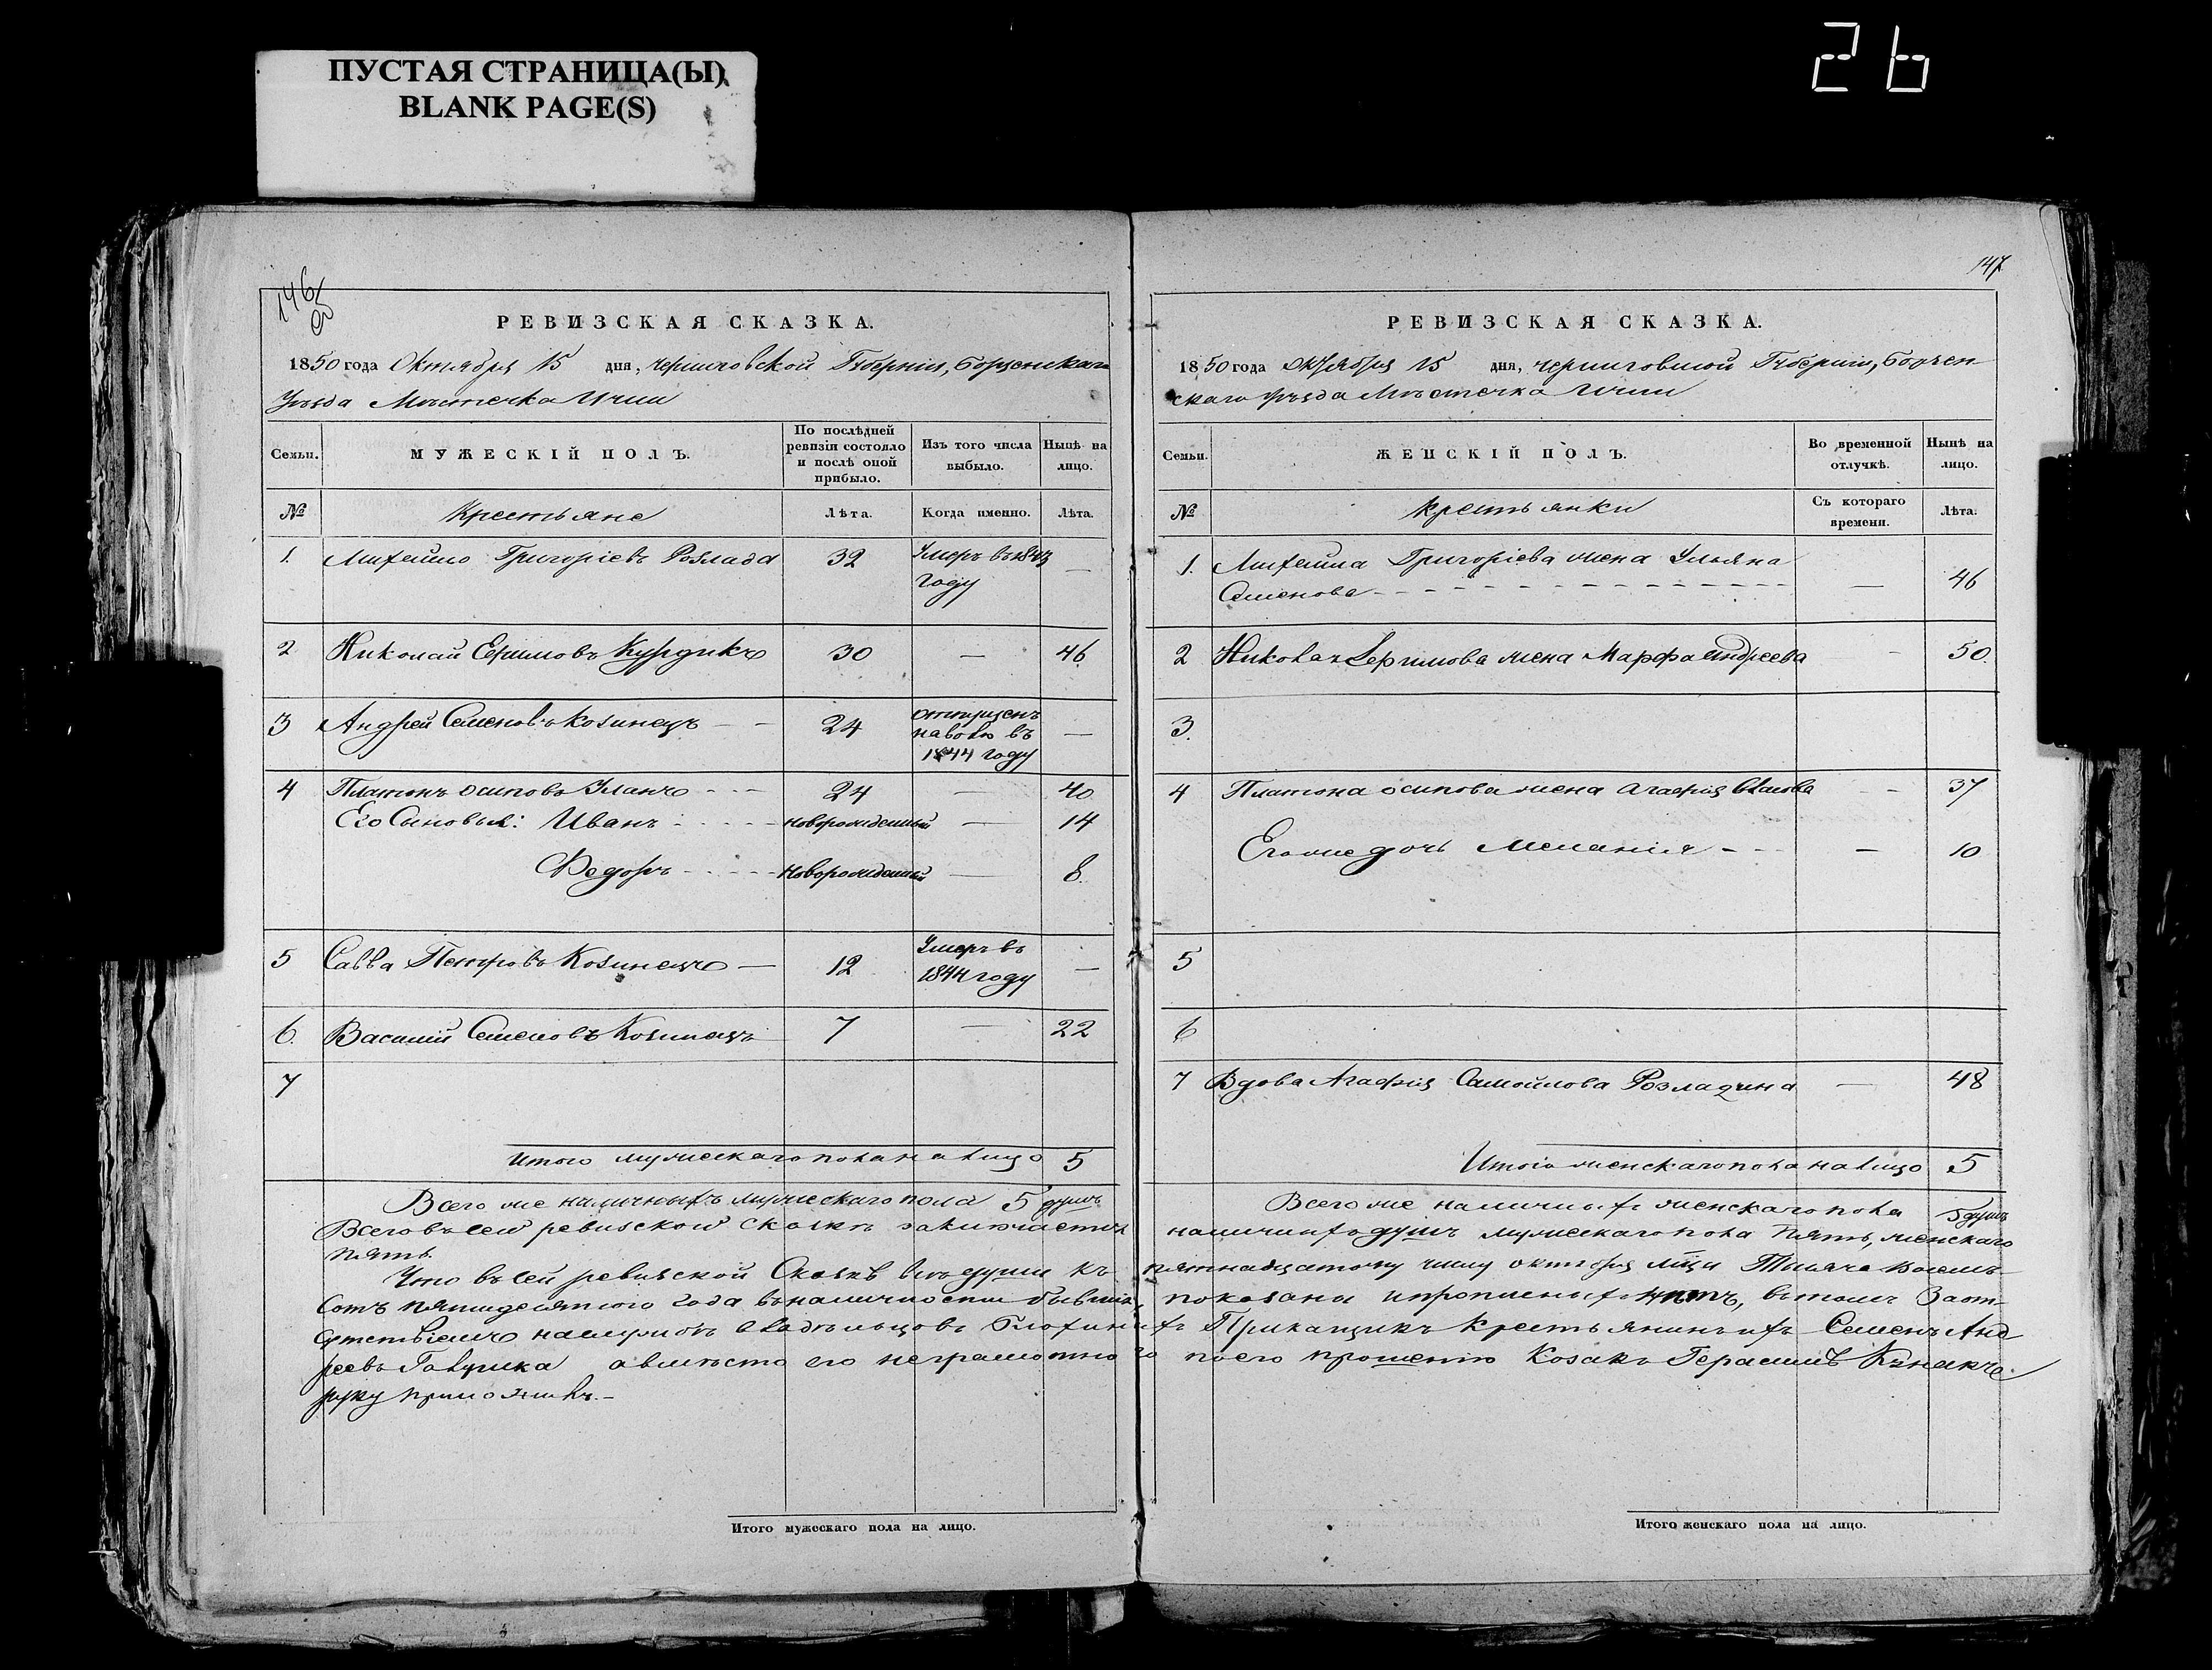 ПУСТАЯ СТРАНИЦА(Ы)
BLANK PAGE(S)
26
146
об
РЕВИЗСКАЯ СКАЗКА.
1850 года Октября 15 дня, Черниговской Губерніи, Борзенскаго
Уѣзда Мѣстечка Ични
Семьи.
МУЖЕСКІЙ ПОЛЪ.
По послѣдней ревизіи состояло и послѣ оной прибыло.
Изъ того числа выбыло.
Нынѣ на лицо.
№
Крестьяне
Лѣта.
Когда именно.
Лѣта.
1. Михейло Григоріевъ Розлада 32 Умеръ въ 1843 —
году
2 Николай Ефимовъ Курдикъ 30 — 46
3 Андрей Семеновъ Козинецъ — 24 отпущенъ на волю въ 1844 году —
4 Платонъ Осиповъ Уланъ 24 — 40
Его Сыновья: Иванъ новорожденный — 14
Федоръ новорожденный — 8.
5 Савва Петровъ Козинецъ — 12 Умеръ въ 1844 году —
6. Василій Семеновъ Козинецъ 7 — 22
7
Итого мужескаго пола на лицо 5
Всего же наличныхъ мужескаго пола 5 душъ
Всего въ сей ревизской сказкѣ заключается
пять.
147
РЕВИЗСКАЯ СКАЗКА.
1850 года Октября 15 дня, Черниговской Губерніи, Борзен
скаго уѣзда Мѣстечка Ични
Семьи.
ЖЕНСКІЙ ПОЛЪ.
Во временной отлучкѣ.
Нынѣ на лицо.
№
Крестьянки
Съ котораго времени.
Лѣта.
1. Михейла Григоріева жена Ульяна
Семенова — 46
2 Николая Ефимова жена Марфа Андреева - 50.
3.
4 Платона Осипова жена Агафія Власова 37
Его же дочь Меланія — 10
5
6
7 Вдова Агафія Самойлова Розладина — 48
Итого женскаго пола на лицо 5
Всего же наличныхъ женскаго пола 5 душъ
наличныхъ душъ мужескаго пола пять, женскаго
Что въ сей ревизской Сказкѣ всѣ души къ пятнадцатому числу октября мца Тысяча восемь
сотъ пятидесятого года въ наличности бывшія, показаны и прописныхъ нѣтъ, въ томъ За от-
сутствіемъ владѣльцовъ Прикащикъ крестьянинъ ихъ Семенъ Анд
реевъ Галушка а вмѣсто его неграмотного по его прошенію Козакъ Герасимъ
руку приложилъ.-
Итого мужескаго пола на лицо.
Итого женскаго пола на лицо.